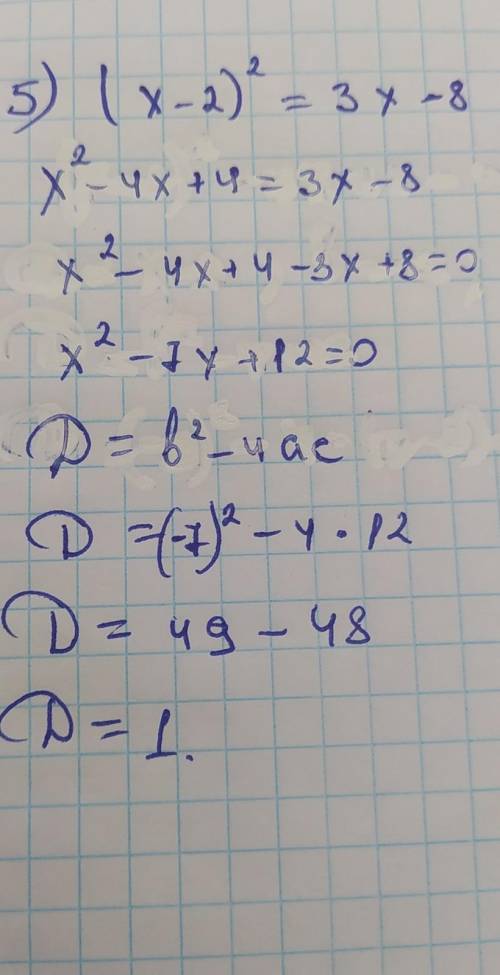 5) (x-2)² = 3x-8
x²-4x+4=3x-8
x²-4x+4-3x+8=0
x²-7x+12=0
D=b²-4ac
D=(-7)²-4·12
D=49-48
D=1.